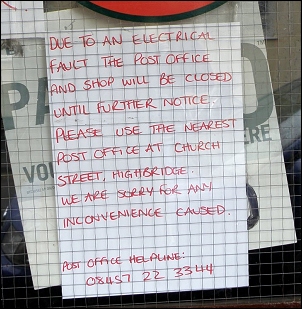 DUE TO AN ELECTRICAL
FAULT THE POST OFFICE
AND SHOP WILL BE CLOSED
UNTIL FURTHER NOTICE.
PLEASE USE THE NEAREST
POST OFFICE AT CHURCH
STREET, HIGHBRIDGE.
WE ARE SORRY FOR ANY
INCONVENIENCE CAUSED.
POST OFFICE HELPLINE:
08457 22 3344
PA
O
YOU
ERE